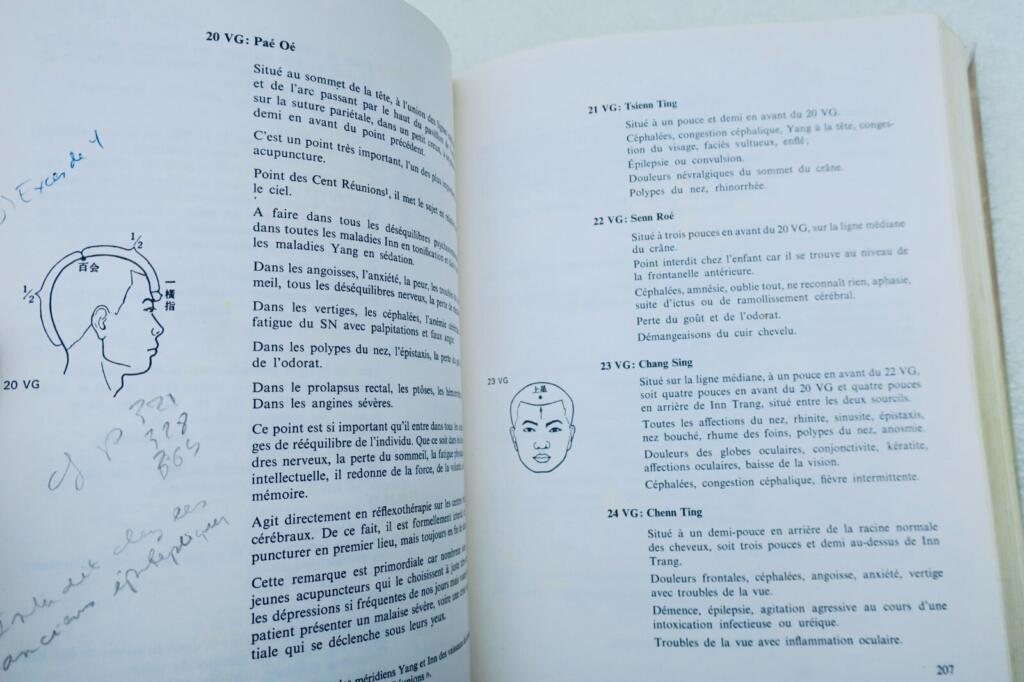 20 VG: Paé Oé
Situé au sommet de la tête, à l'union des lignes
et de l'arc passant par le haut du pavillon
sur la suture pariétale, dans un petit creux, à
demi en avant du point précédent.
C'est un point très important, l'un des plus
acupuncture.
Point des Cent Réunions¹, il met le sujet en
le ciel.
A faire dans tous les déséquilibres
dans toutes les maladies Inn en tonification et dans
les maladies Yang en sédation.
Dans les angoisses, l'anxiété, la peur, les troubles
meil, tous les déséquilibres nerveux, la perte de
Dans les vertiges, les céphalées, l'anémie
fatigue du SN avec palpitations et
Dans les polypes du nez, l'épistaxis, la perte du
de l'odorat.
Dans le prolapsus rectal, les ptôses, les
Dans les angines sévères.
Ce point est si important qu'il entre dans tous les
ges de rééquilibre de l'individu. Que ce soit dans les
dres nerveux, la perte du sommeil, la fatigue
intellectuelle, il redonne de la force, de la
mémoire.
Agit directement en réflexothérapie sur les centres
cérébraux. De ce fait, il est formellement
puncturer en premier lieu, mais toujours en fin de
Cette remarque est primordiale car nombreux
jeunes acupuncteurs qui le choisissent à juste
les dépressions si fréquentes de nos jours mais
patient présenter un malaise sévère, voire une
tiale qui se déclenche sous leurs yeux.
méridiens Yang et Inn des
Excès de Y
1/2
1/2
百会
一横指
20 VG
cf p 321
328
365
ciens épileptiques
21 VG: Tsienn Ting
Situé à un pouce et demi en avant du 20 VG.
Céphalées, congestion céphalique, Yang à la tête, conges-
tion du visage, faciès vultueux, enflé;
Épilepsie ou convulsion.
Douleurs névralgiques du sommet du crâne.
Polypes du nez, rhinorrhée.
22 VG: Senn Roé
Situé à trois pouces en avant du 20 VG, sur la ligne médiane
du crâne.
Point interdit chez l'enfant car il se trouve au niveau de
la frontanelle antérieure.
Céphalées, amnésie, oublie tout, ne reconnaît rien, aphasie,
suite d'ictus ou de ramollissement cérébral.
Perte du goût et de l'odorat.
Démangeaisons du cuir chevelu.
23 VG: Chang Sing
Situé sur la ligne médiane, à un pouce en avant du 22 VG,
soit quatre pouces en avant du 20 VG et quatre pouces
en arrière de Inn Trang, situé entre les deux sourcils.
Toutes les affections du nez, rhinite, sinusite, épistaxis,
nez bouché, rhume des foins, polypes du nez, anosmie.
Douleurs des globes oculaires, conjonctivite, kératite,
affections oculaires, baisse de la vision.
Céphalées, congestion céphalique, fièvre intermittente.
23 VG
上星
24 VG: Chenn Ting
Situé à un demi-pouce en arrière de la racine normale
des cheveux, soit trois pouces et demi au-dessus de Inn
Trang.
Douleurs frontales, céphalées, angoisse, anxiété, vertige
avec troubles de la vue.
Démence, épilepsie, agitation agressive au cours d'une
intoxication infectieuse ou uréique.
Troubles de la vue avec inflammation oculaire.
207